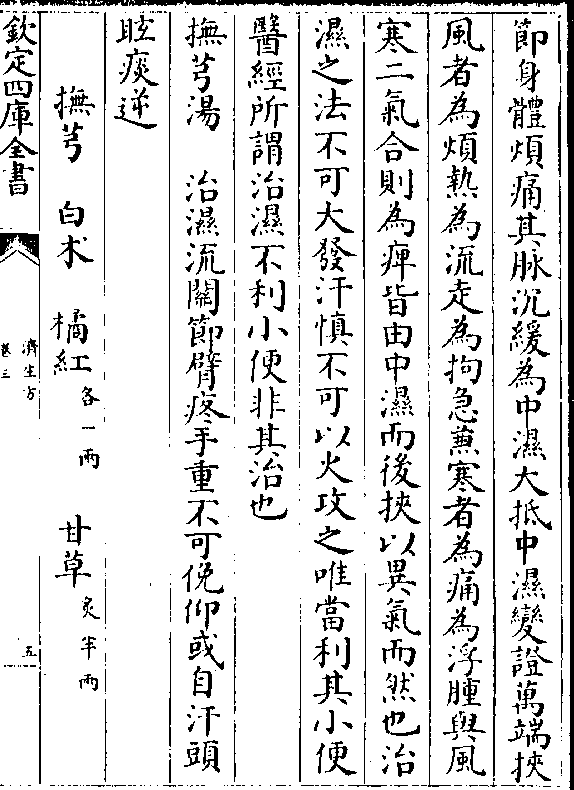 節身體煩痛其脉沉緩為中濕大抵中濕變證萬端挾
風者為煩熱為流走為拘急兼寒者為痛為浮腫與風
寒二氣合則為痺皆由中濕而後挾以異氣而然也治
濕之法不可大發汗慎不可以火攻之唯當利其小便
醫經所謂治濕不利小便非其治也
撫芎湯　治濕流關節臂疼手重不可俛仰或自汗頭
眩痰逆
撫芎　白朮　橘紅各一兩　甘草炙半兩
欽定四庫全書
濟生方
卷三
五